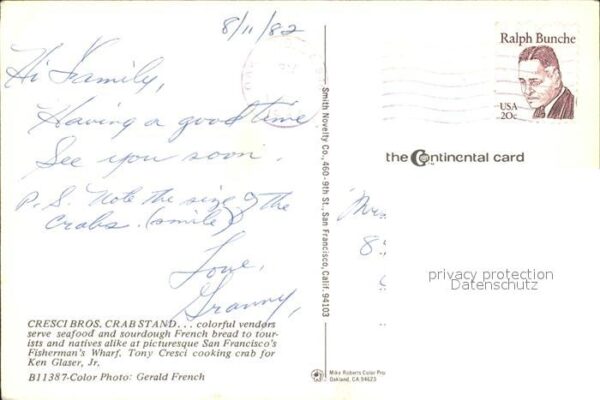 8/11/82
Hi Family,
Having a good time
See you soon.
P.S. Note the size of the
crabs. (smile)
Love,
Granny,
CRESCI BROS. CRAB STAND... colorful vendors
serve seafood and sourdough French bread to tour-
ists and natives alike at picturesque San Francisco's
Fisherman's Wharf. Tony Cresci cooking crab for
Ken Glaser, Jr.
B11387-Color Photo: Gerald French
Smith Novelty Co., 460-9th St., San Francisco, Calif. 94103
Ralph Bunche
USA
20c
the Continental card
Mrs
8
privacy protection
Datenschutz
Mike Roberts Color Pro
Oakland, CA 94623